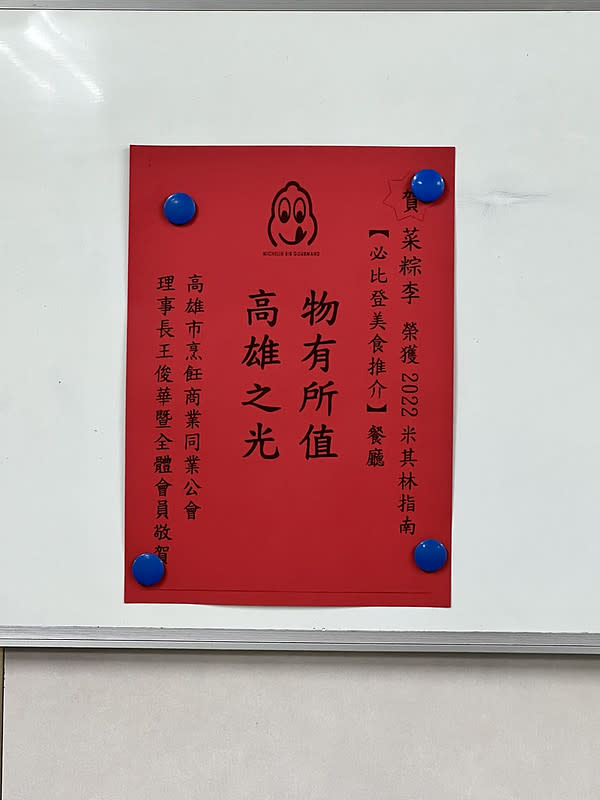 賀 菜粽李 榮獲 2022 米其林指南
【必比登美食推介】餐廳
MICHELIN BIB GOURMAND
物有所值
高雄之光
高雄市烹飪商業同業公會
理事長王俊華暨全體會員敬賀